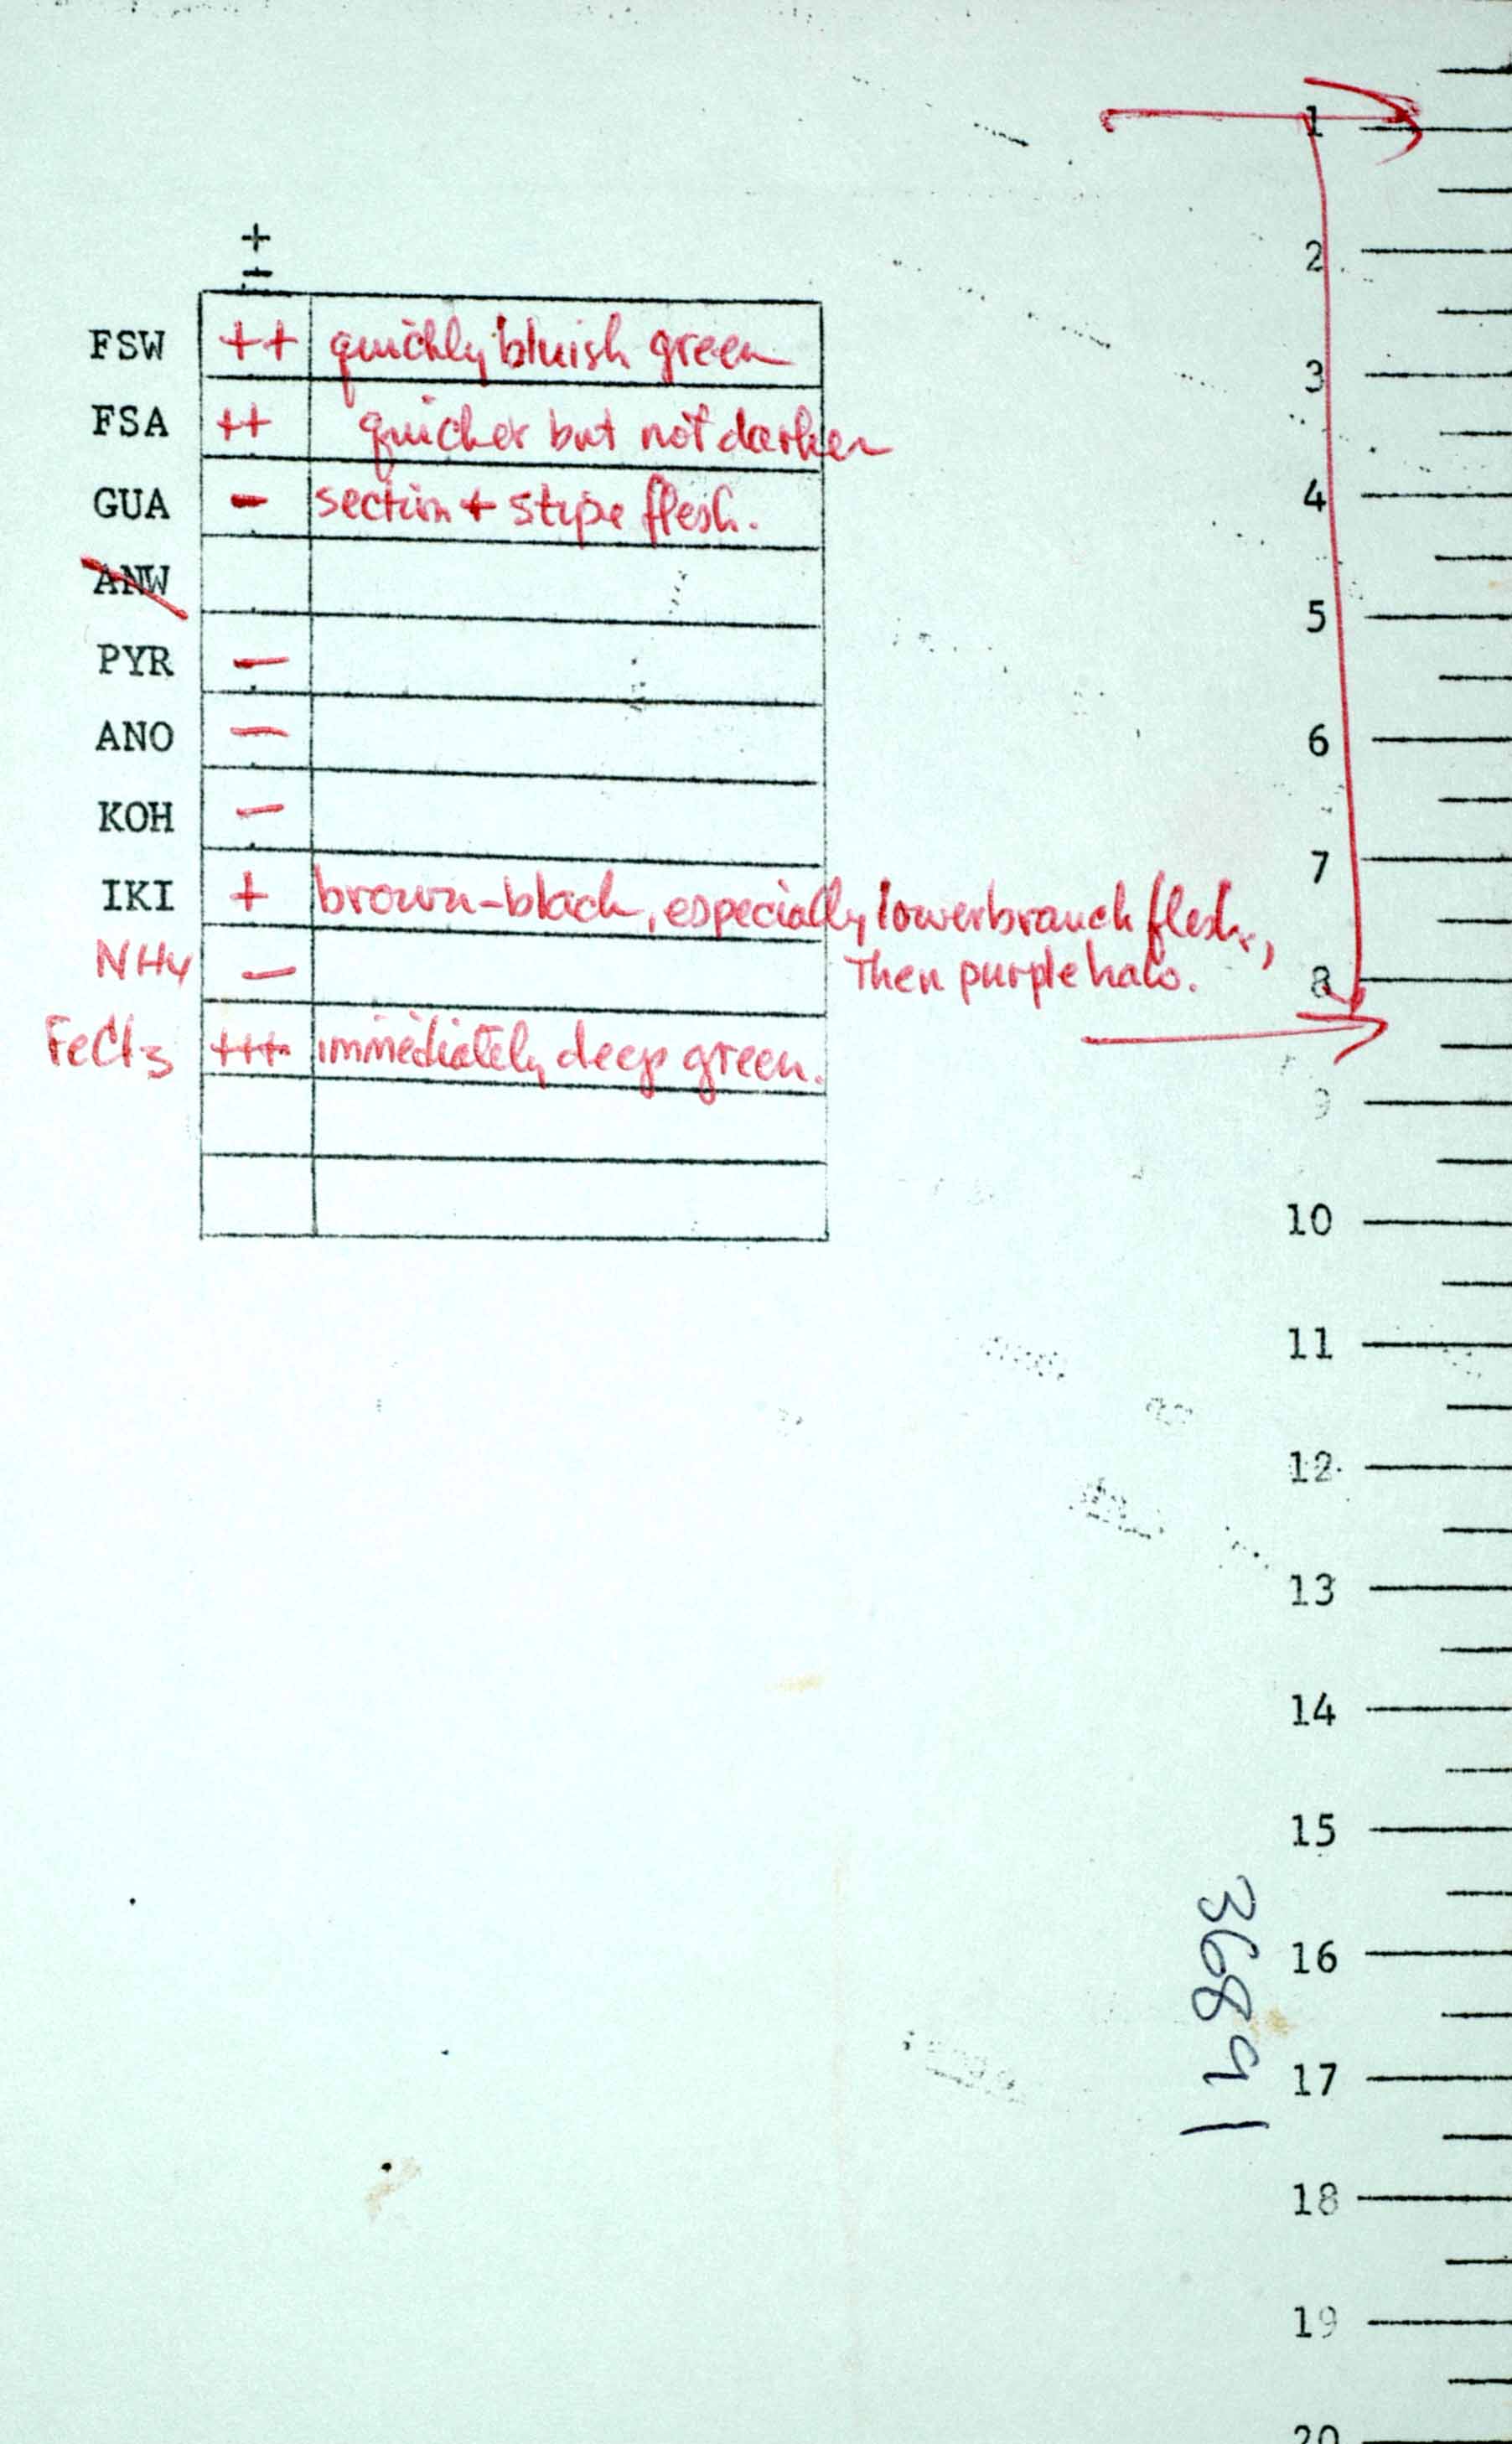 +
-
FSW ++ quickly bluish green
FSA ++ quicker but not darker
GUA - section + stipe flesh.
ANW
PYR -
ANO -
KOH -
IKI + brown-black, especially lower branch flesh,
Then purple halo.
NH4 -
FeCl3 +++ immediately deep green.
1
2
3
4
5
6
7
8
9
10
11
12
13
14
15
16
17
18
19
20
36891